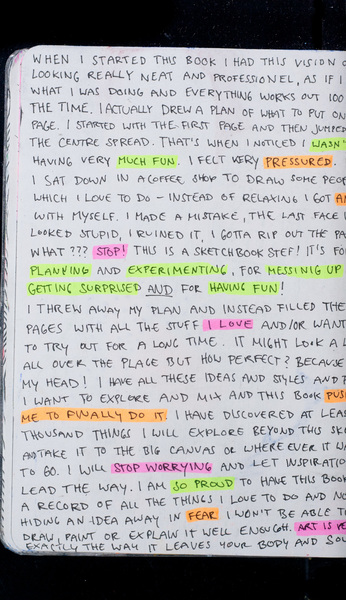 WHEN I STARTED THIS BOOK I HAD THIS VISION O
LOOKING REALLY NEAT AND PROFESSIONEL, AS IF I
WHAT I WAS DOING AND EVERYTHING WORKS OUT 100
THE TIME. I ACTUALLY DREW A PLAN OF WHAT TO PUT ON
PAGE. I STARTED WITH THE FIRST PAGE AND THEN JUMPED
THE CENTRE SPREAD. THAT'S WHEN I NOTICED I WASN'
HAVING VERY MUCH FUN. I FELT VERY PRESSURED.
I SAT DOWN IN A COFFEE SHOP TO DRAW SOME PEOP
WHICH I LOVE TO DO - INSTEAD OF RELAXING I GOT AN
WITH MYSELF. I MADE A MISTAKE, THE LAST FACE I
LOOKED STUPID, I RUINED IT, I GOTTA RIP OUT THE PA
WHAT ??? STOP! THIS IS A SKETCHBOOK STEF! IT'S FO
PLANNING AND EXPERIMENTING, FOR MESSINIG UP
GETTING SURPRISED AND FOR HAVING FUN!
I THREW AWAY MY PLAN AND INSTEAD FILLED THE
PAGES WITH ALL THE STUFF I LOVE AND/OR WANT
TO TRY OUT FOR A LONG TIME. IT MIGHT LOOK A L
ALL OVER THE PLACE BUT HOW PERFECT? BECAUSE
MY HEAD! I HAVE ALL THESE IDEAS AND STYLES AND
I WANT TO EXPLORE AND MIX AND THIS BOOK PUS
ME TO FINALLY DO IT. I HAVE DISCOVERED AT LEAS
THOUSAND THINGS I WILL EXPLORE BEYOND THIS SK
AND TAKE IT TO THE BIG CANVAS OR WHERE EVER IT WA
TO GO. I WILL STOP WORRYING AND LET INSPIRATIO
LEAD THE WAY. I AM SO PROUD TO HAVE THIS BOOK
A RECORD OF ALL THE THINGS I LOVE TO DO AND NO
HIDING AN IDEA AWAY IN FEAR I WON'T BE ABLE T
DRAW, PAINT OR EXPLAIN IT WELL ENOUGH. ART IS PE
EXACTLY THE WAY IT LEAVES YOUR BODY AND SOU